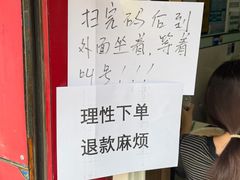 扫完码后到
外面坐着,等着
叫号!!!
理性下单
退款麻烦